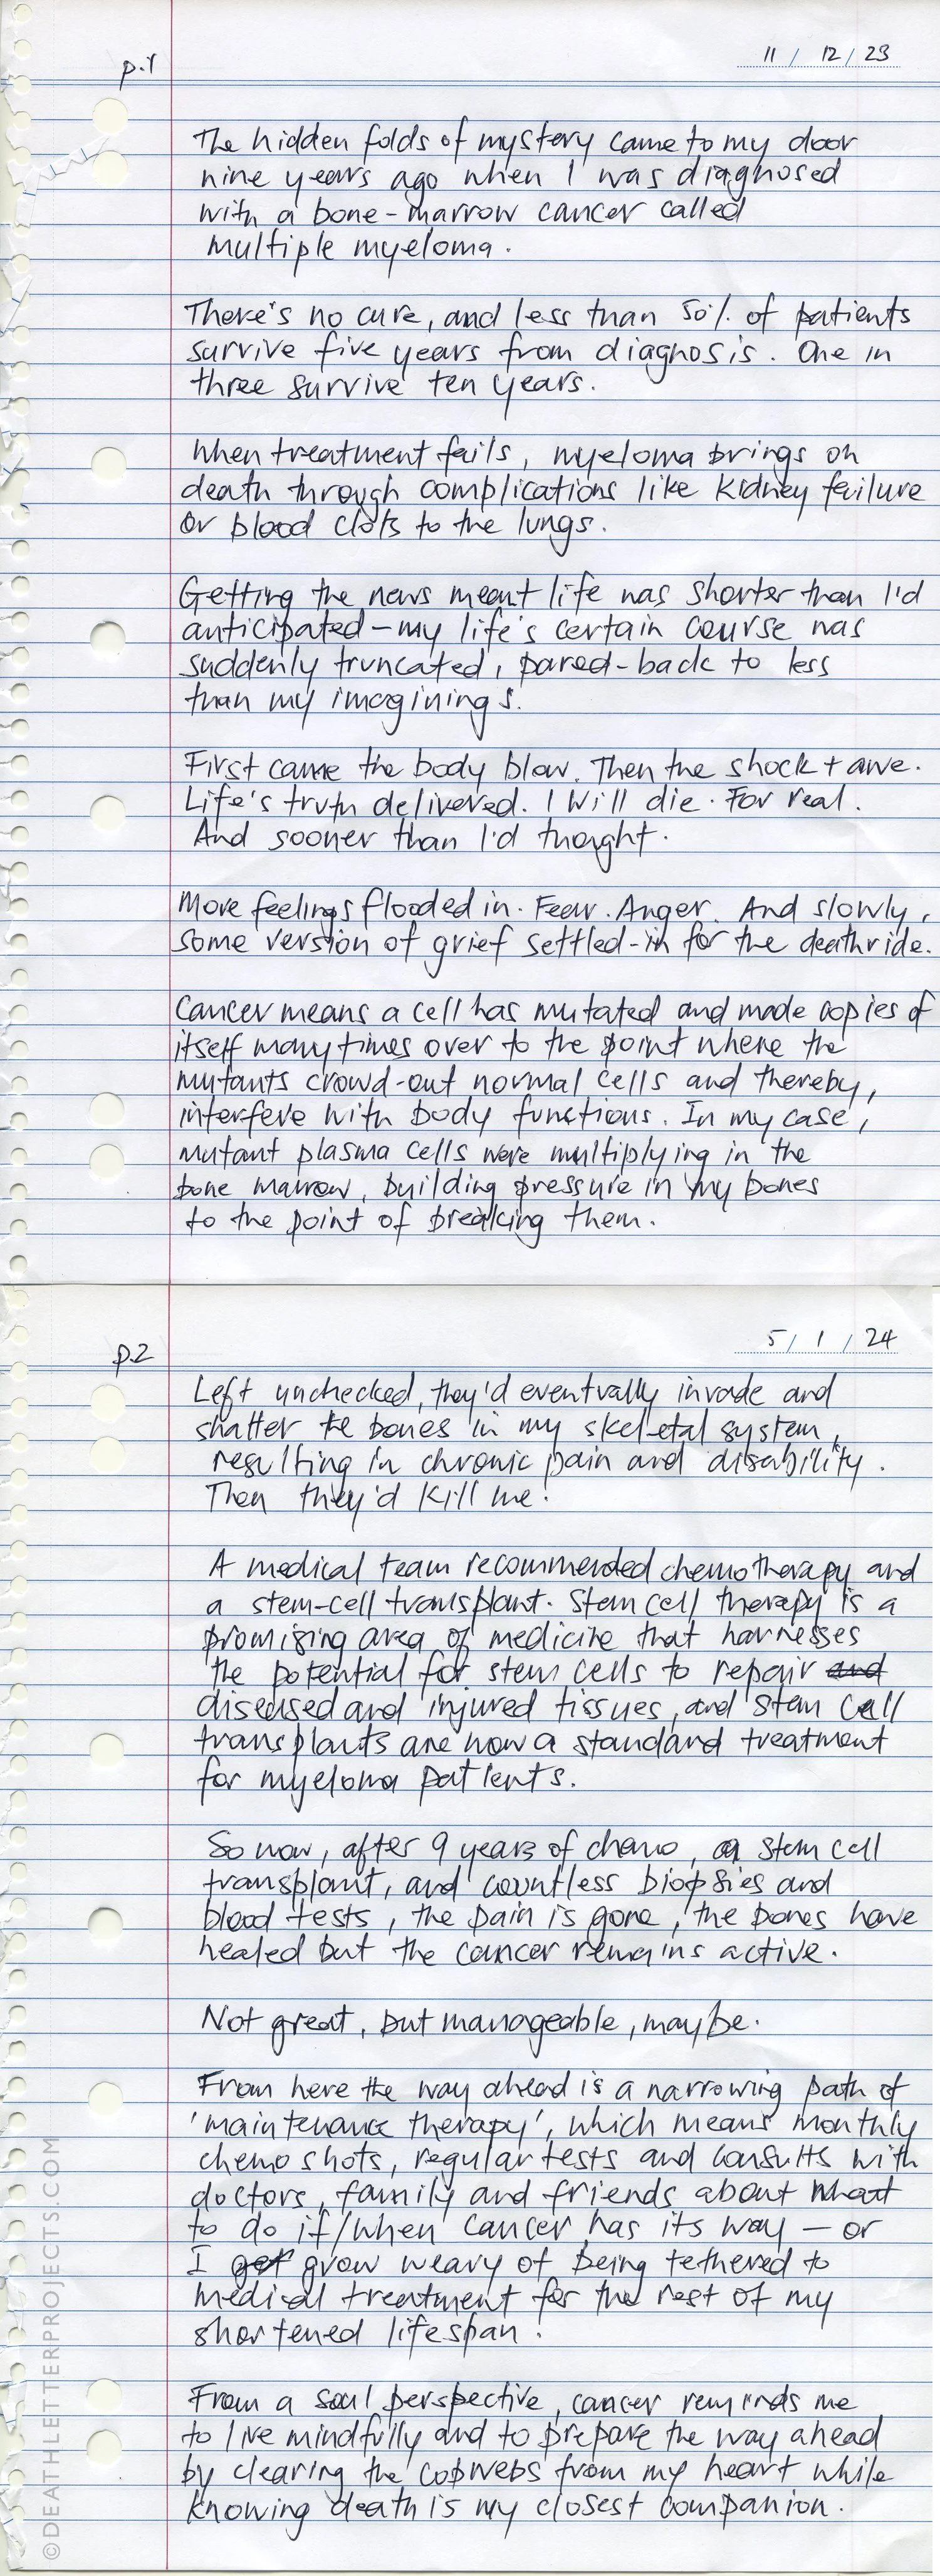 p.1
11 / 12 / 23
The hidden folds of mystery came to my door
nine years ago when I was diagnosed
with a bone-marrow cancer called
multiple myeloma.
There's no cure, and less than 50% of patients
survive five years from diagnosis. One in
three survive ten years.
When treatment fails, myeloma brings on
death through complications like kidney failure
or blood clots to the lungs.
Getting the news meant life was shorter than I'd
anticipated – my life's certain course was
suddenly truncated, pared-back to less
than my imaginings.
First came the body blow. Then the shock + awe.
Life's truth delivered. I will die. For real.
And sooner than I'd thought.
More feelings flooded in. Fear. Anger. And slowly,
some version of grief settled-in for the deathride.
Cancer means a cell has mutated and made copies of
itself many times over to the point where the
mutants crowd-out normal cells and thereby,
interfere with body functions. In my case,
mutant plasma cells were multiplying in the
bone marrow, building pressure in my bones
to the point of breaking them.
p.2
5 / 1 / 24
Left unchecked, they'd eventually invade and
shatter the bones in my skeletal system,
resulting in chronic pain and disability.
Then they'd kill me.
A medical team recommended chemotherapy and
a stem-cell transplant. Stem cell therapy is a
promising area of medicine that harnesses
the potential for stem cells to repair and
diseased and injured tissues, and stem cell
transplants are now a standard treatment
for myeloma patients.
So now, after 9 years of chemo, a stem cell
transplant, and countless biopsies and
blood tests, the pain is gone, the bones have
healed but the cancer remains active.
Not great, but manageable, maybe.
From here the way ahead is a narrowing path of
'maintenance therapy', which means monthly
chemo shots, regular tests and consults with
doctors, family and friends about what
to do if/when cancer has its way – or
I get grow weary of being tethered to
medical treatment for the rest of my
shortened lifespan.
From a soul perspective, cancer reminds me
to live mindfully and to prepare the way ahead
by clearing the cobwebs from my heart while
knowing death is my closest companion.
©DEATHLETTERPROJECTS.COM